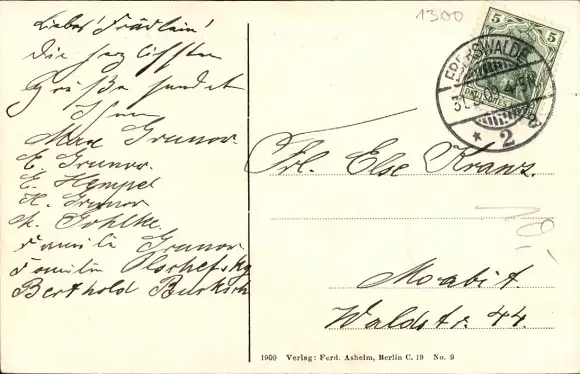 1300
Liebes Fräulein!
Die herzlichsten
Grüße sendet
Ihnen
Max Grunow.
E. Grunow.
E. Hempel
H. Grunow
M. Pohlke.
Familie Grunow.
Familie Olschefsky
Berthold
5 5
EBERSWALDE
* 2 a
Frl. Else Kranz.
Moabit.
Waldstr. 44.
1909 Verlag: Ferd. Ashelm, Berlin C. 19 No. 9